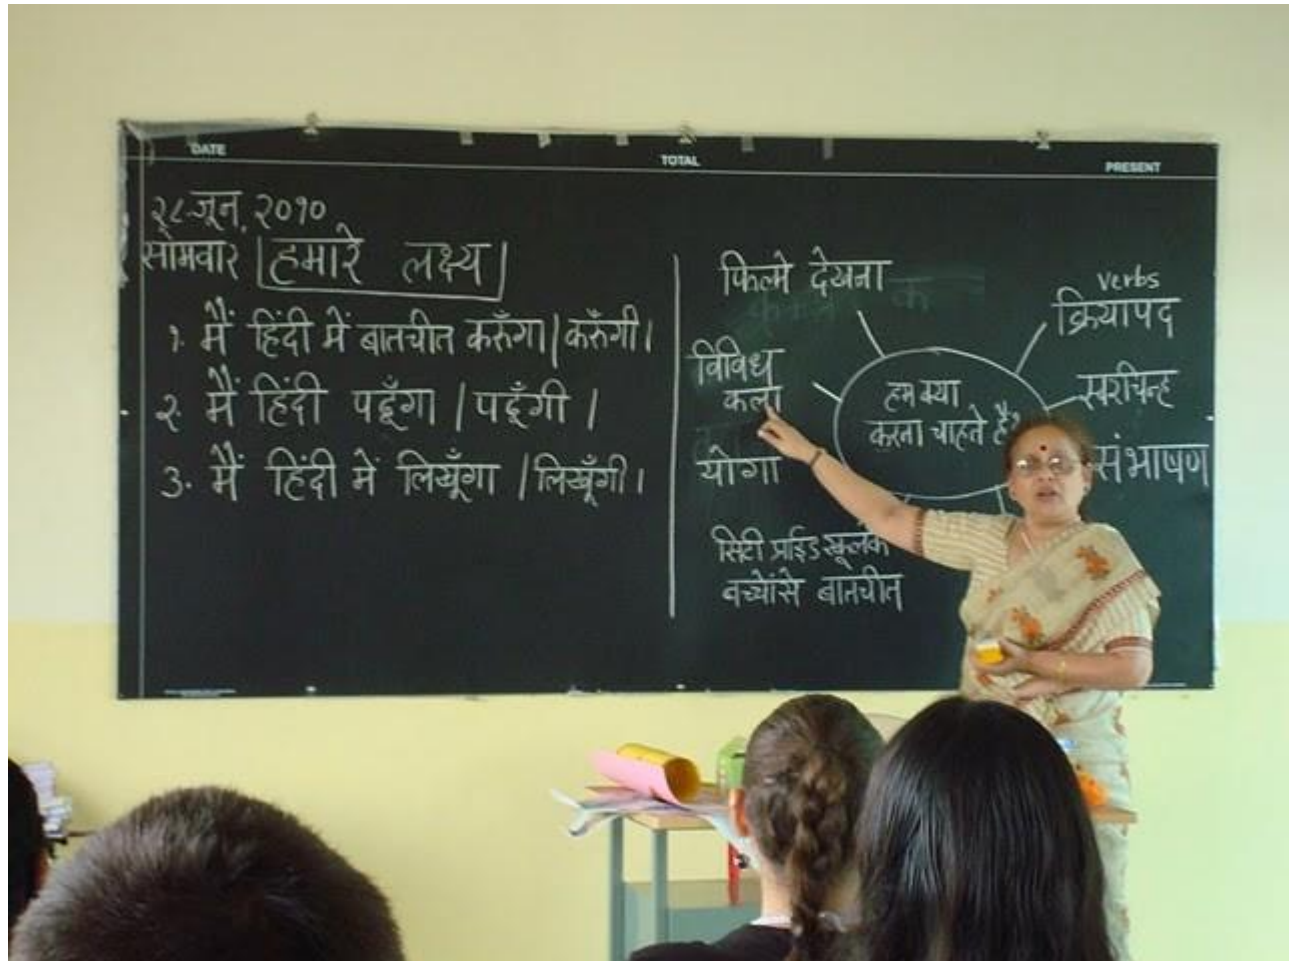 DATE
TOTAL
PRESENT
२८ जून, २०१०
सोमवार | हमारे लक्ष्य |
१. मैं हिंदी में बातचीत करुँगा | करुँगी ।
२. मैं हिंदी पढूँगा | पढूँगी ।
३. मैं हिंदी में लिखूँगा | लिखूँगी ।
फिल्मे देखना
विविध
कला
योगा
सिटी प्राईड स्कूलके
बच्चोंसे बातचीत
हम क्या
करना चाहते हैं?
verbs
क्रियापद
स्वरचिन्ह
संभाषण